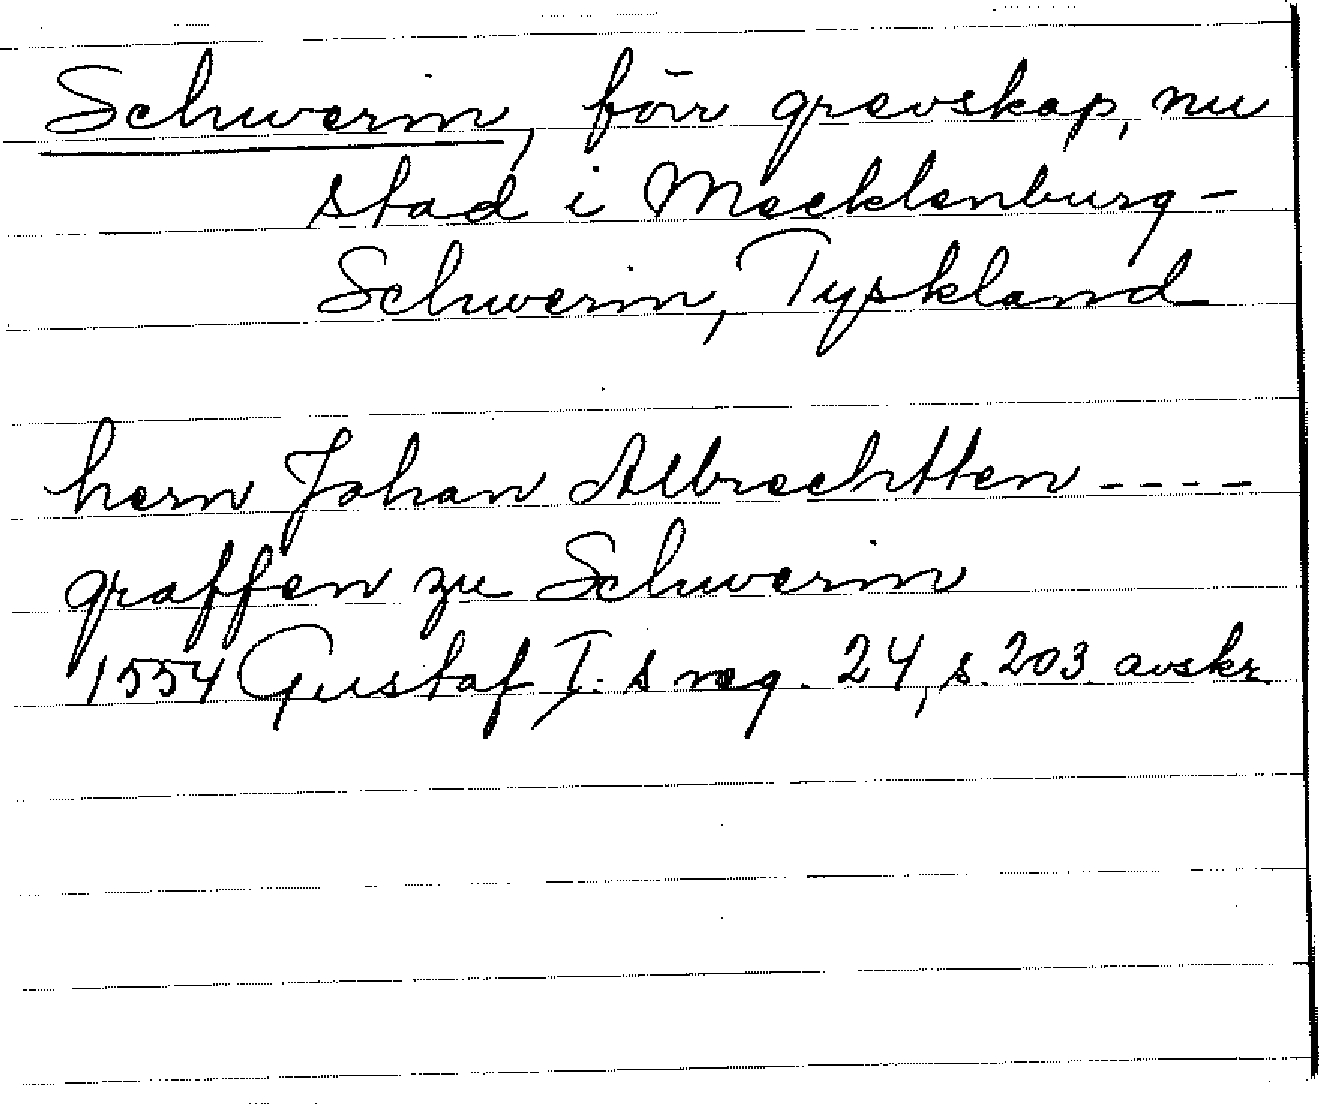 Schwerin, förr grevskap, nu
stad i Mecklenburg-
Schwerin, Tyskland
hern Johan Albrechtten ----
graffen zu Schwerin
1554 Gustaf I:s reg. 24, s. 203 avskr.